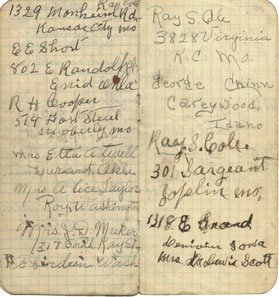 Ray Cole
1329 Monheim Rd
Kansas City Mo
E E Short
802 E Randolph
Enid Okla
R H Cooper
Moberly, Mo
Mrs Etta Atwell
Durant, Okla
Mrs Alice Taylor
Roy, Washington
Mrs J. D. Maker
1217 South Ray St
Wash
Ray S. Cole
3828 Virginia
K. C. Mo.
George Chinn
Careywood,
Idaho
Ray S. Cole.
301 Sargeant
Joplin Mo,
1318 E Grand
Iowa
Mrs Lewis Scott